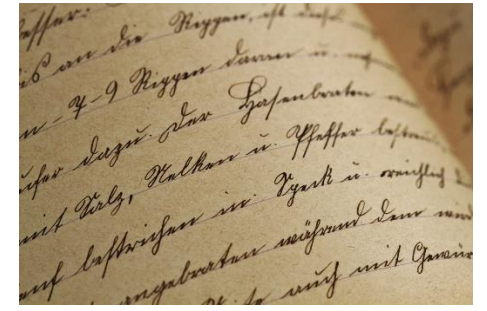 effer:
is an die Rippen, ist
n - 7-9 Rippen daran u.
dazu. Der Hasenbraten
mit Salz, Nelken u. Pfeffer bestreu
nf bestrichen in Speck u. reichlich
angebraten während dem wird
auch mit Gewür